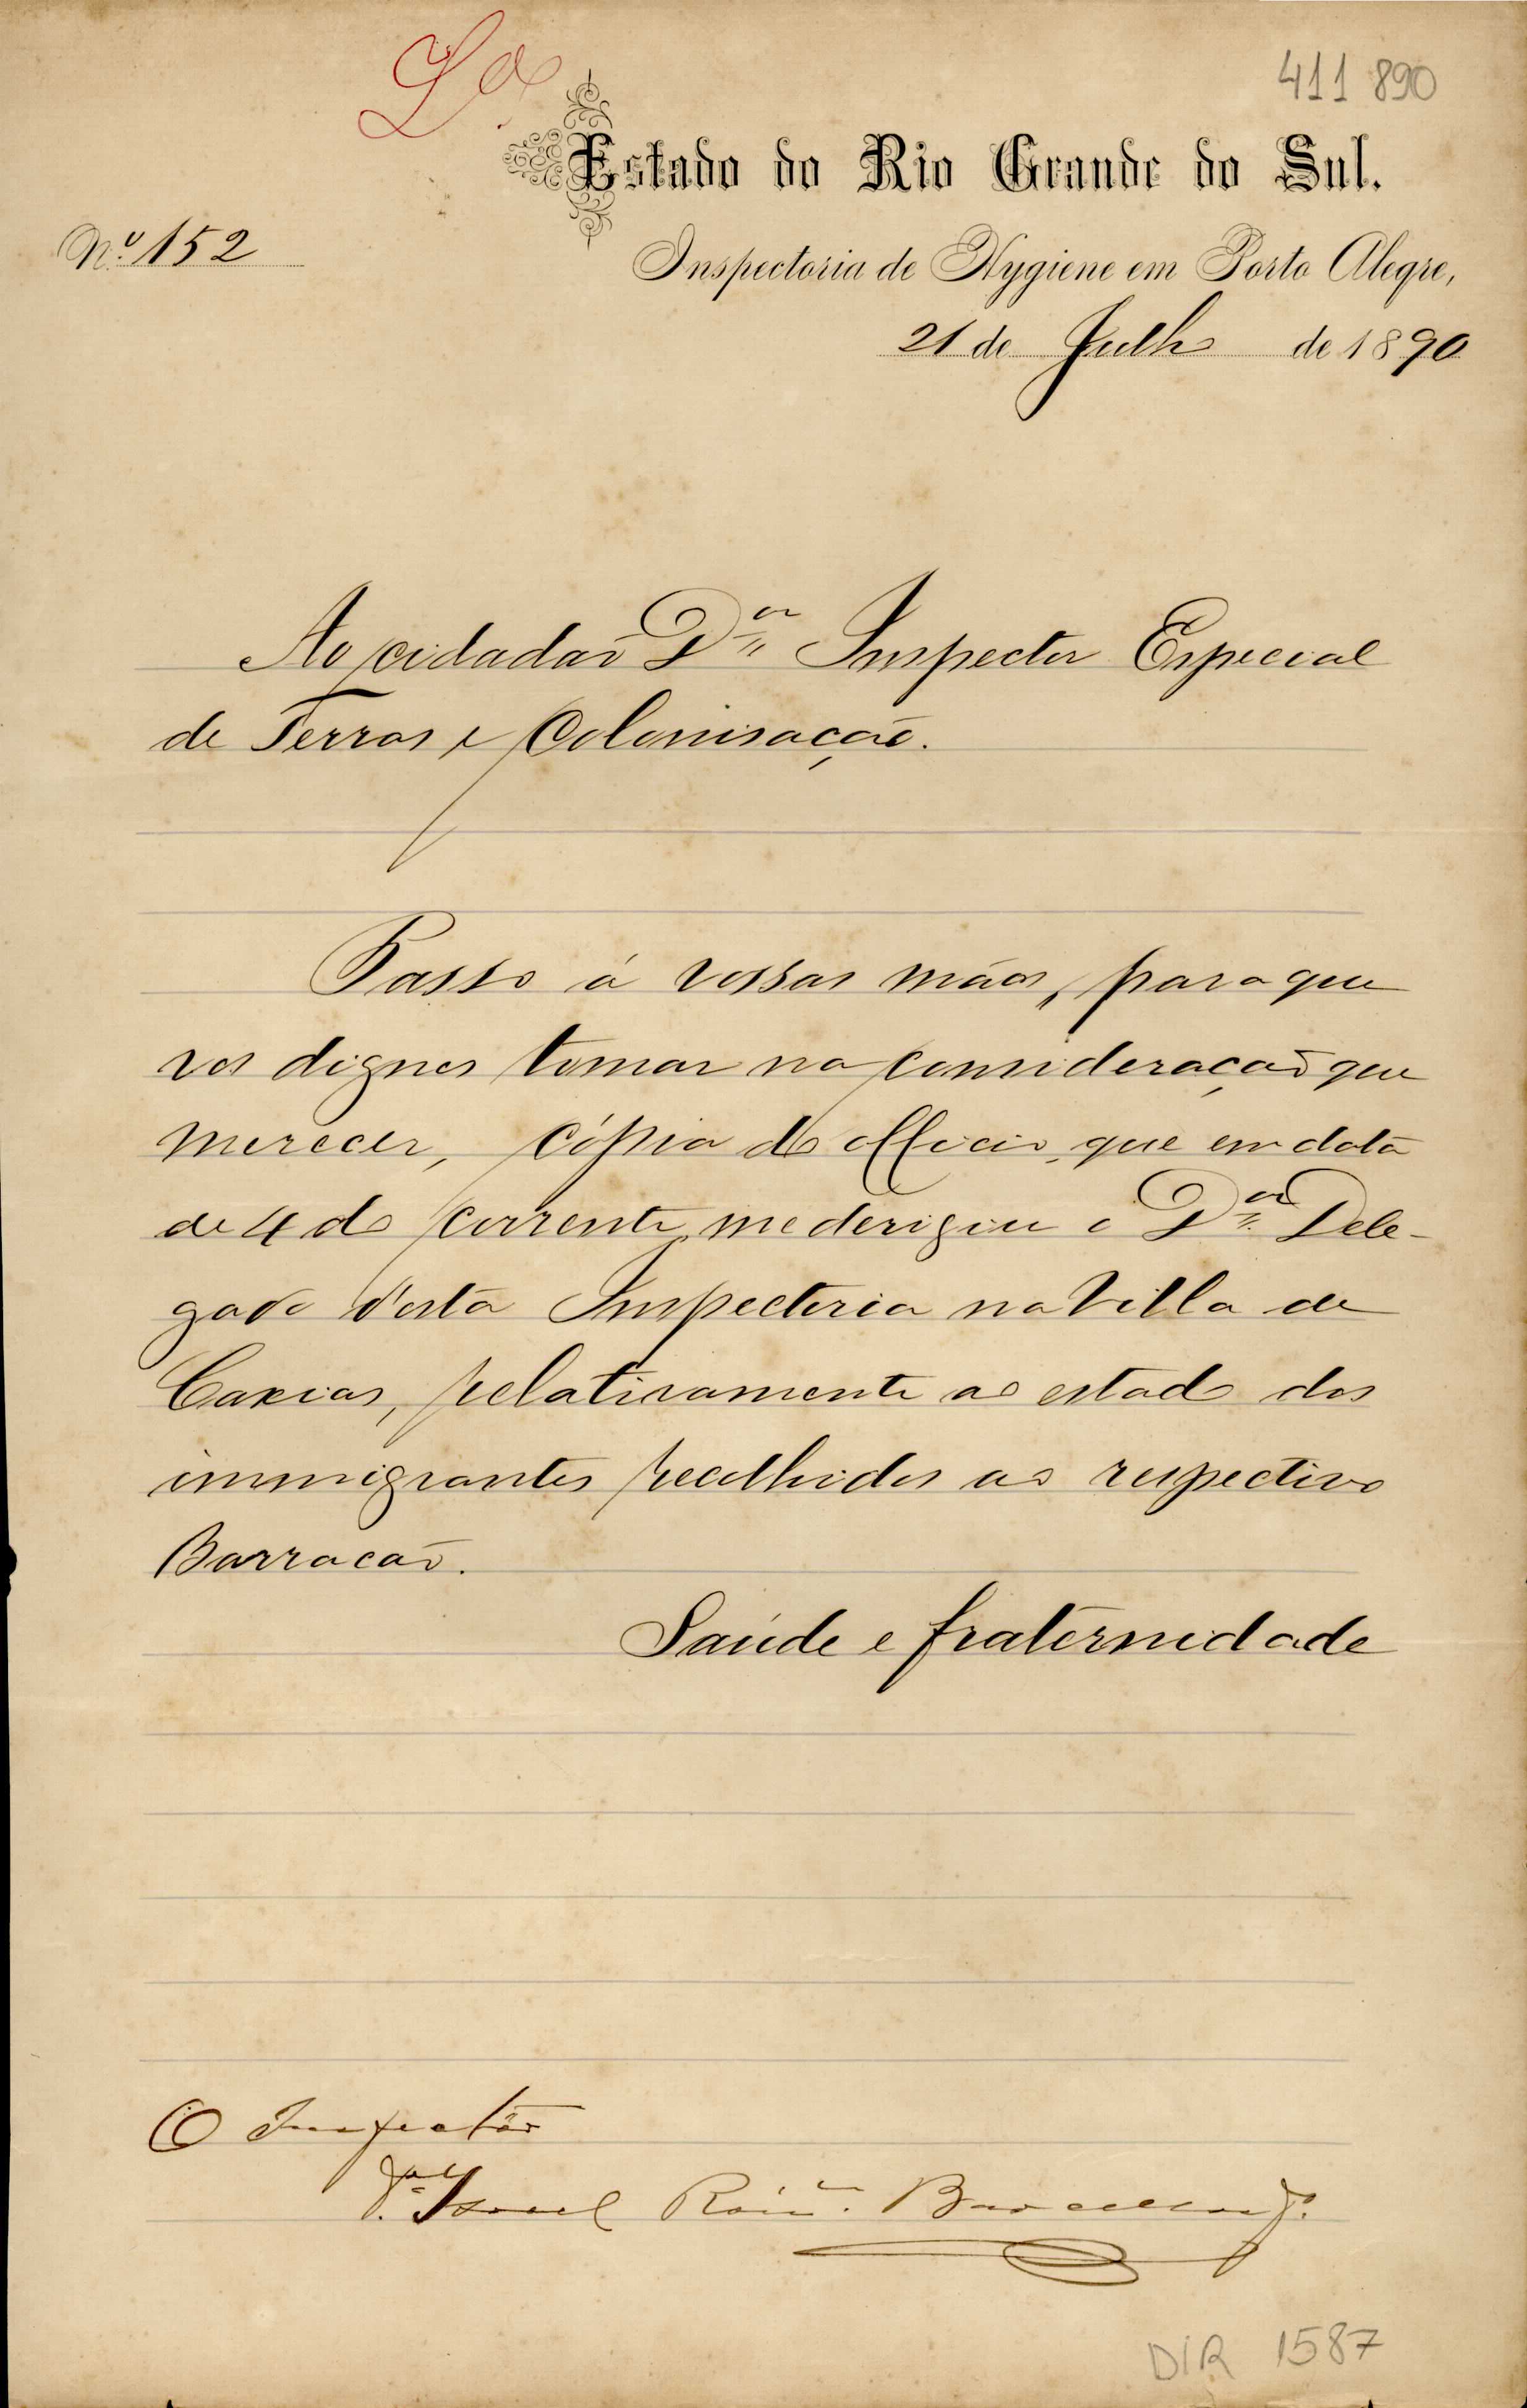 411 890
Estado do Rio Grande do Sul.
Nº 152
Inspectoria de Hygiene em Porto Alegre,
21 de Julho de 1890
Ao cidadão Dr. Inspector Especial
de Terras e Colonisação.
Passo á vossas mãos, para que
vos dignes tomar na consideração que
merecer, cópia do officio, que em data
de 4 do corrente, me derigiu o Dr. Dele-
gado d'esta Inspectoria na Villa de
Caxias, relativamente ao estado dos
immigrantes recolhidos ao respectivo
Barracão.
Saúde e fraternidade
O Inspector
Dr. Israel Barcellos Fº.
DIR 1587